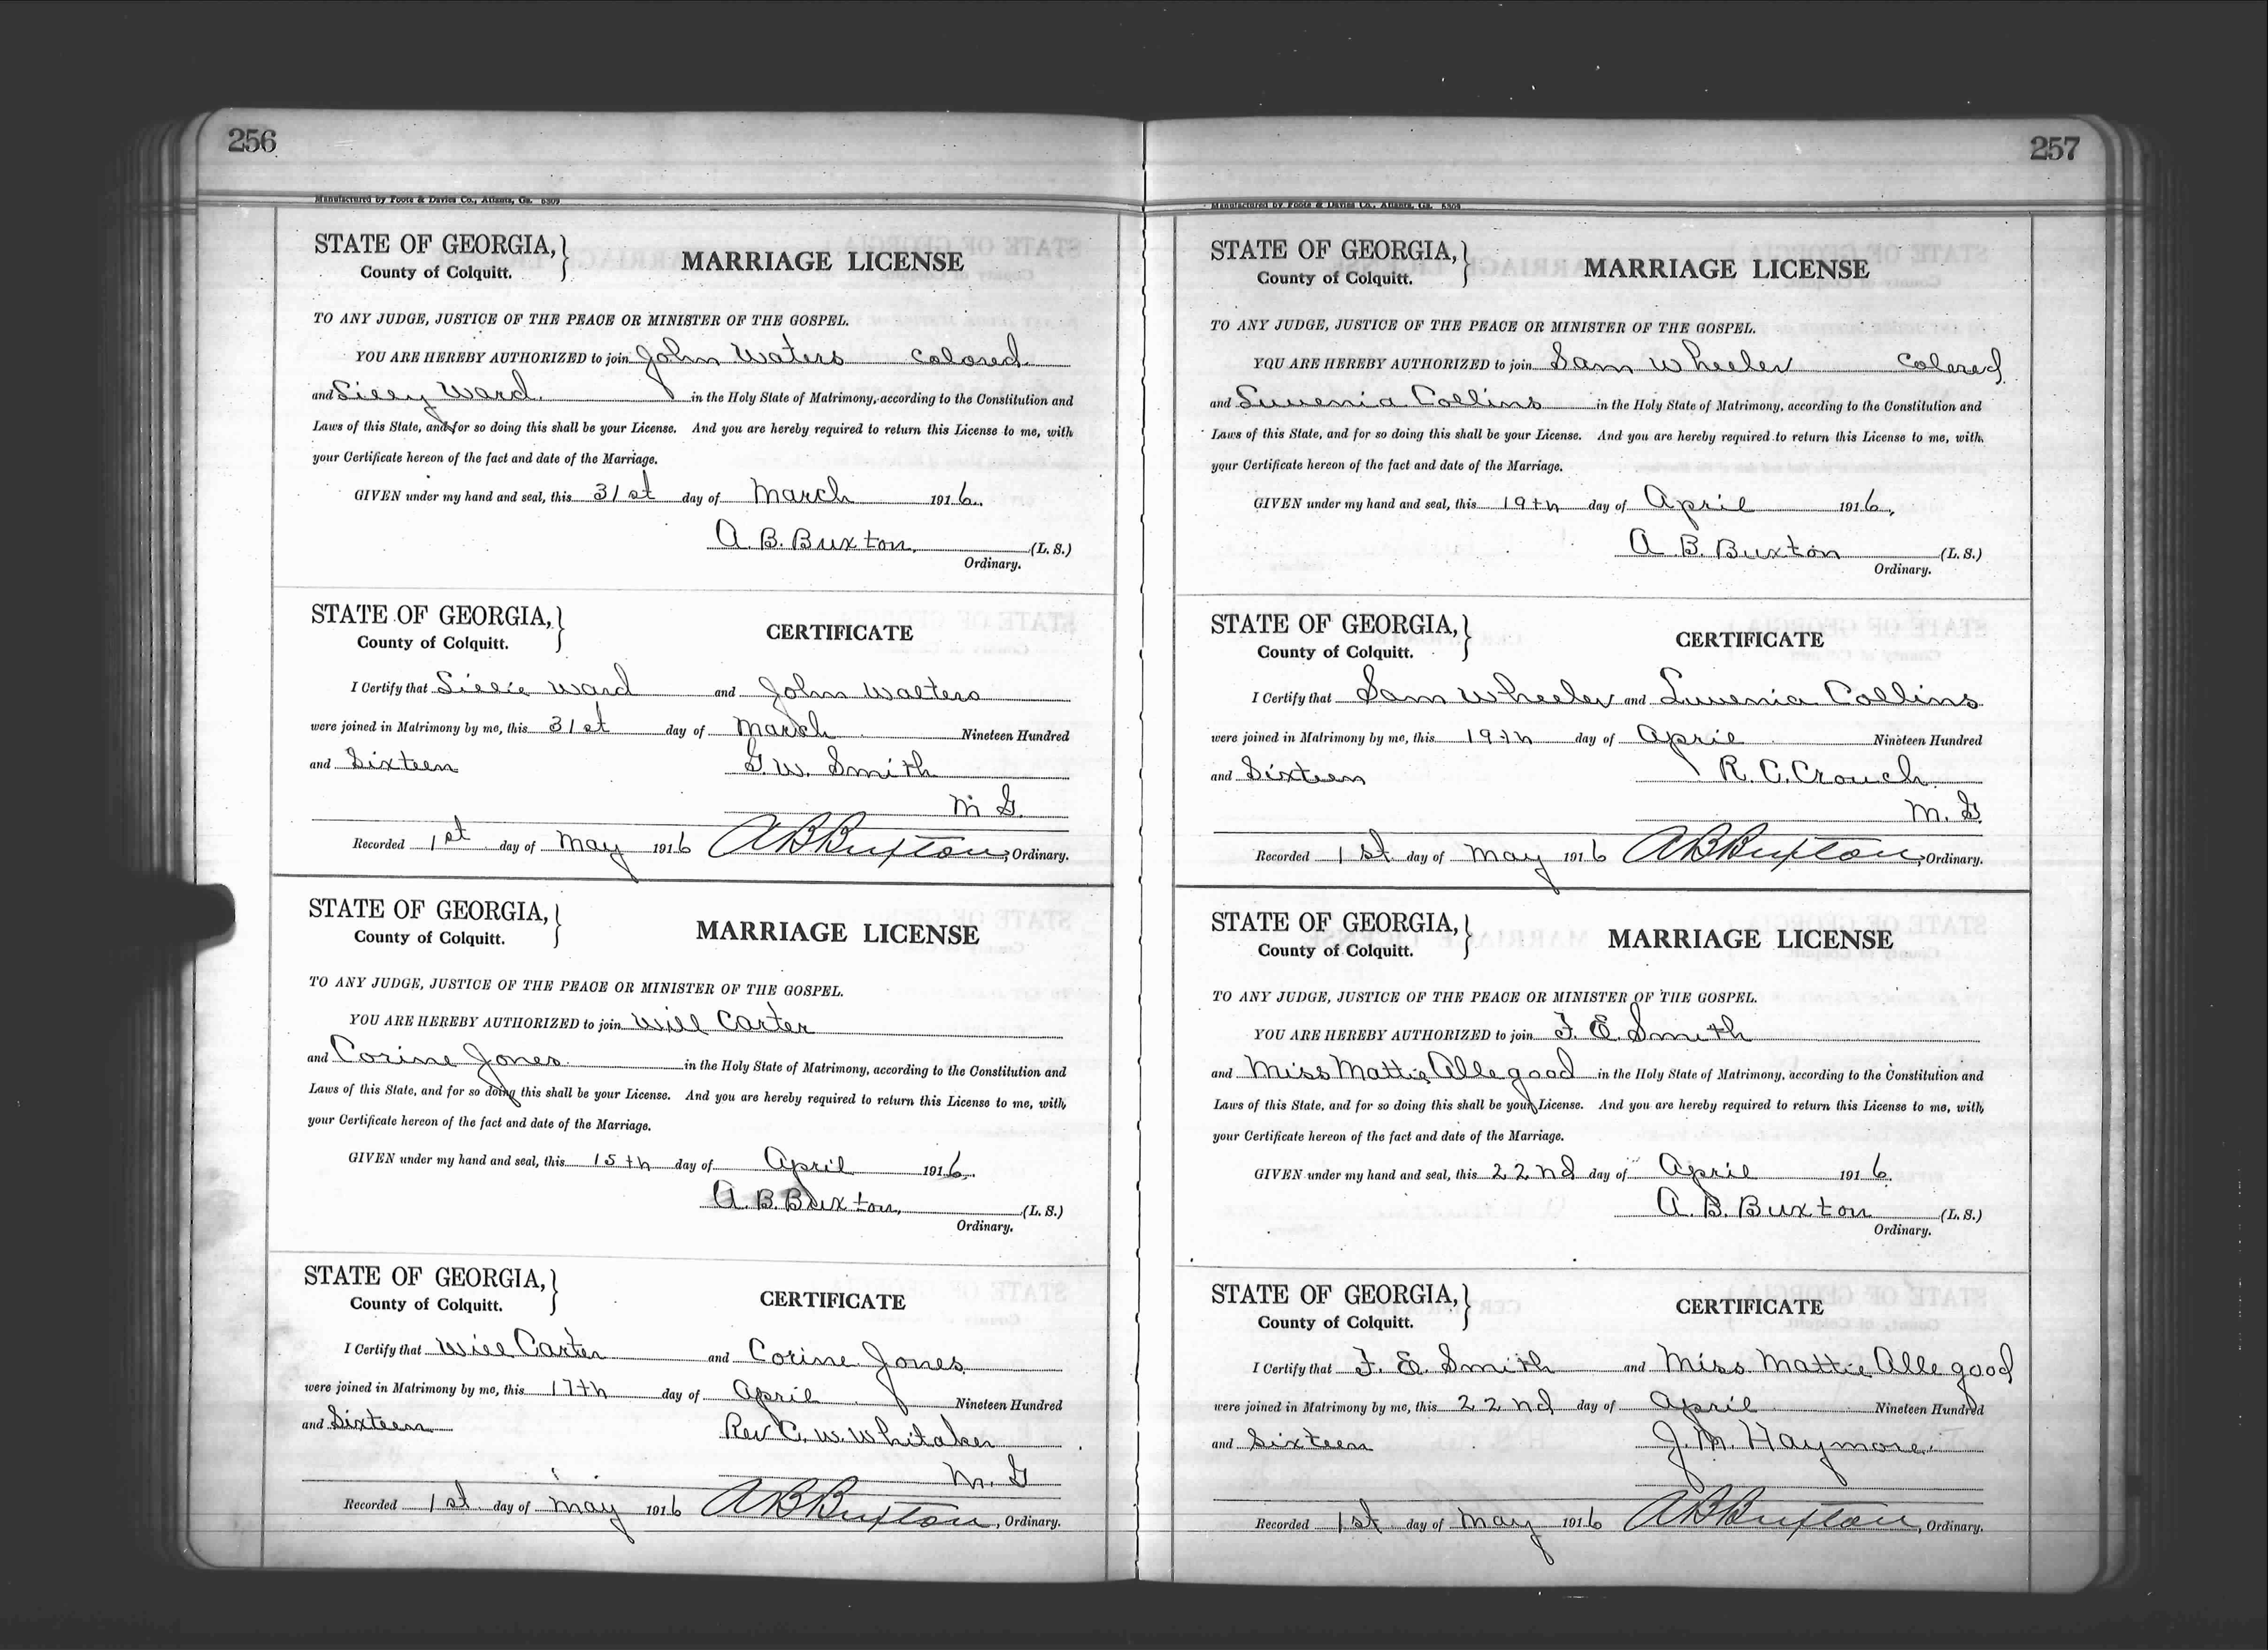 256
Manufactured by Foote & Davies Co., Atlanta, Ga. 6309
STATE OF GEORGIA,
County of Colquitt.
MARRIAGE LICENSE
TO ANY JUDGE, JUSTICE OF THE PEACE OR MINISTER OF THE GOSPEL.
YOU ARE HEREBY AUTHORIZED to join John Waters colored
and Lilly Ward. in the Holy State of Matrimony, according to the Constitution and
Laws of this State, and for so doing this shall be your License. And you are hereby required to return this License to me, with
your Certificate hereon of the fact and date of the Marriage.
GIVEN under my hand and seal, this 31st day of March 1916.
A. B. Buxton. (L. S.)
Ordinary.
STATE OF GEORGIA,
County of Colquitt.
CERTIFICATE
I Certify that Lillie Ward and John Walters
were joined in Matrimony by me, this 31st day of March Nineteen Hundred
and Sixteen G. W. Smith
M G.
Recorded 1st day of May 1916 A B Buxton, Ordinary.
STATE OF GEORGIA,
County of Colquitt.
MARRIAGE LICENSE
TO ANY JUDGE, JUSTICE OF THE PEACE OR MINISTER OF THE GOSPEL.
YOU ARE HEREBY AUTHORIZED to join Will Carter
and Corine Jones in the Holy State of Matrimony, according to the Constitution and
Laws of this State, and for so doing this shall be your License. And you are hereby required to return this License to me, with
your Certificate hereon of the fact and date of the Marriage.
GIVEN under my hand and seal, this 15th day of April 1916.
A. B. Buxton, (L. S.)
Ordinary.
STATE OF GEORGIA,
County of Colquitt.
CERTIFICATE
I Certify that Will Carter and Corine Jones
were joined in Matrimony by me, this 17th day of April Nineteen Hundred
and Sixteen Rev C. W. Whitaker
M. G
Recorded 1st day of May 1916 A B Buxton, Ordinary.
257
Manufactured by Foote & Davies Co., Atlanta, Ga. 6309
STATE OF GEORGIA,
County of Colquitt.
MARRIAGE LICENSE
TO ANY JUDGE, JUSTICE OF THE PEACE OR MINISTER OF THE GOSPEL.
YOU ARE HEREBY AUTHORIZED to join Sam Wheeler Colored
and Luvenia Collins in the Holy State of Matrimony, according to the Constitution and
Laws of this State, and for so doing this shall be your License. And you are hereby required to return this License to me, with
your Certificate hereon of the fact and date of the Marriage.
GIVEN under my hand and seal, this 19th day of April 1916,
A. B. Buxton (L. S.)
Ordinary.
STATE OF GEORGIA,
County of Colquitt.
CERTIFICATE
I Certify that Sam Wheeler and Luvenia Collins
were joined in Matrimony by me, this 19th day of April Nineteen Hundred
and Sixteen R. C. Crouch
M. G
Recorded 1st day of May 1916 A B Buxton, Ordinary.
STATE OF GEORGIA,
County of Colquitt.
MARRIAGE LICENSE
TO ANY JUDGE, JUSTICE OF THE PEACE OR MINISTER OF THE GOSPEL.
YOU ARE HEREBY AUTHORIZED to join F. E. Smith
and Miss Mattie Allegood in the Holy State of Matrimony, according to the Constitution and
Laws of this State, and for so doing this shall be your License. And you are hereby required to return this License to me, with
your Certificate hereon of the fact and date of the Marriage.
GIVEN under my hand and seal, this 22nd day of April 1916.
A. B. Buxton (L. S.)
Ordinary.
STATE OF GEORGIA,
County of Colquitt.
CERTIFICATE
I Certify that F. E. Smith and Miss Mattie Allegood
were joined in Matrimony by me, this 22nd day of April Nineteen Hundred
and Sixteen J. M. Haymore.
Recorded 1st day of May 1916 A B Buxton, Ordinary.